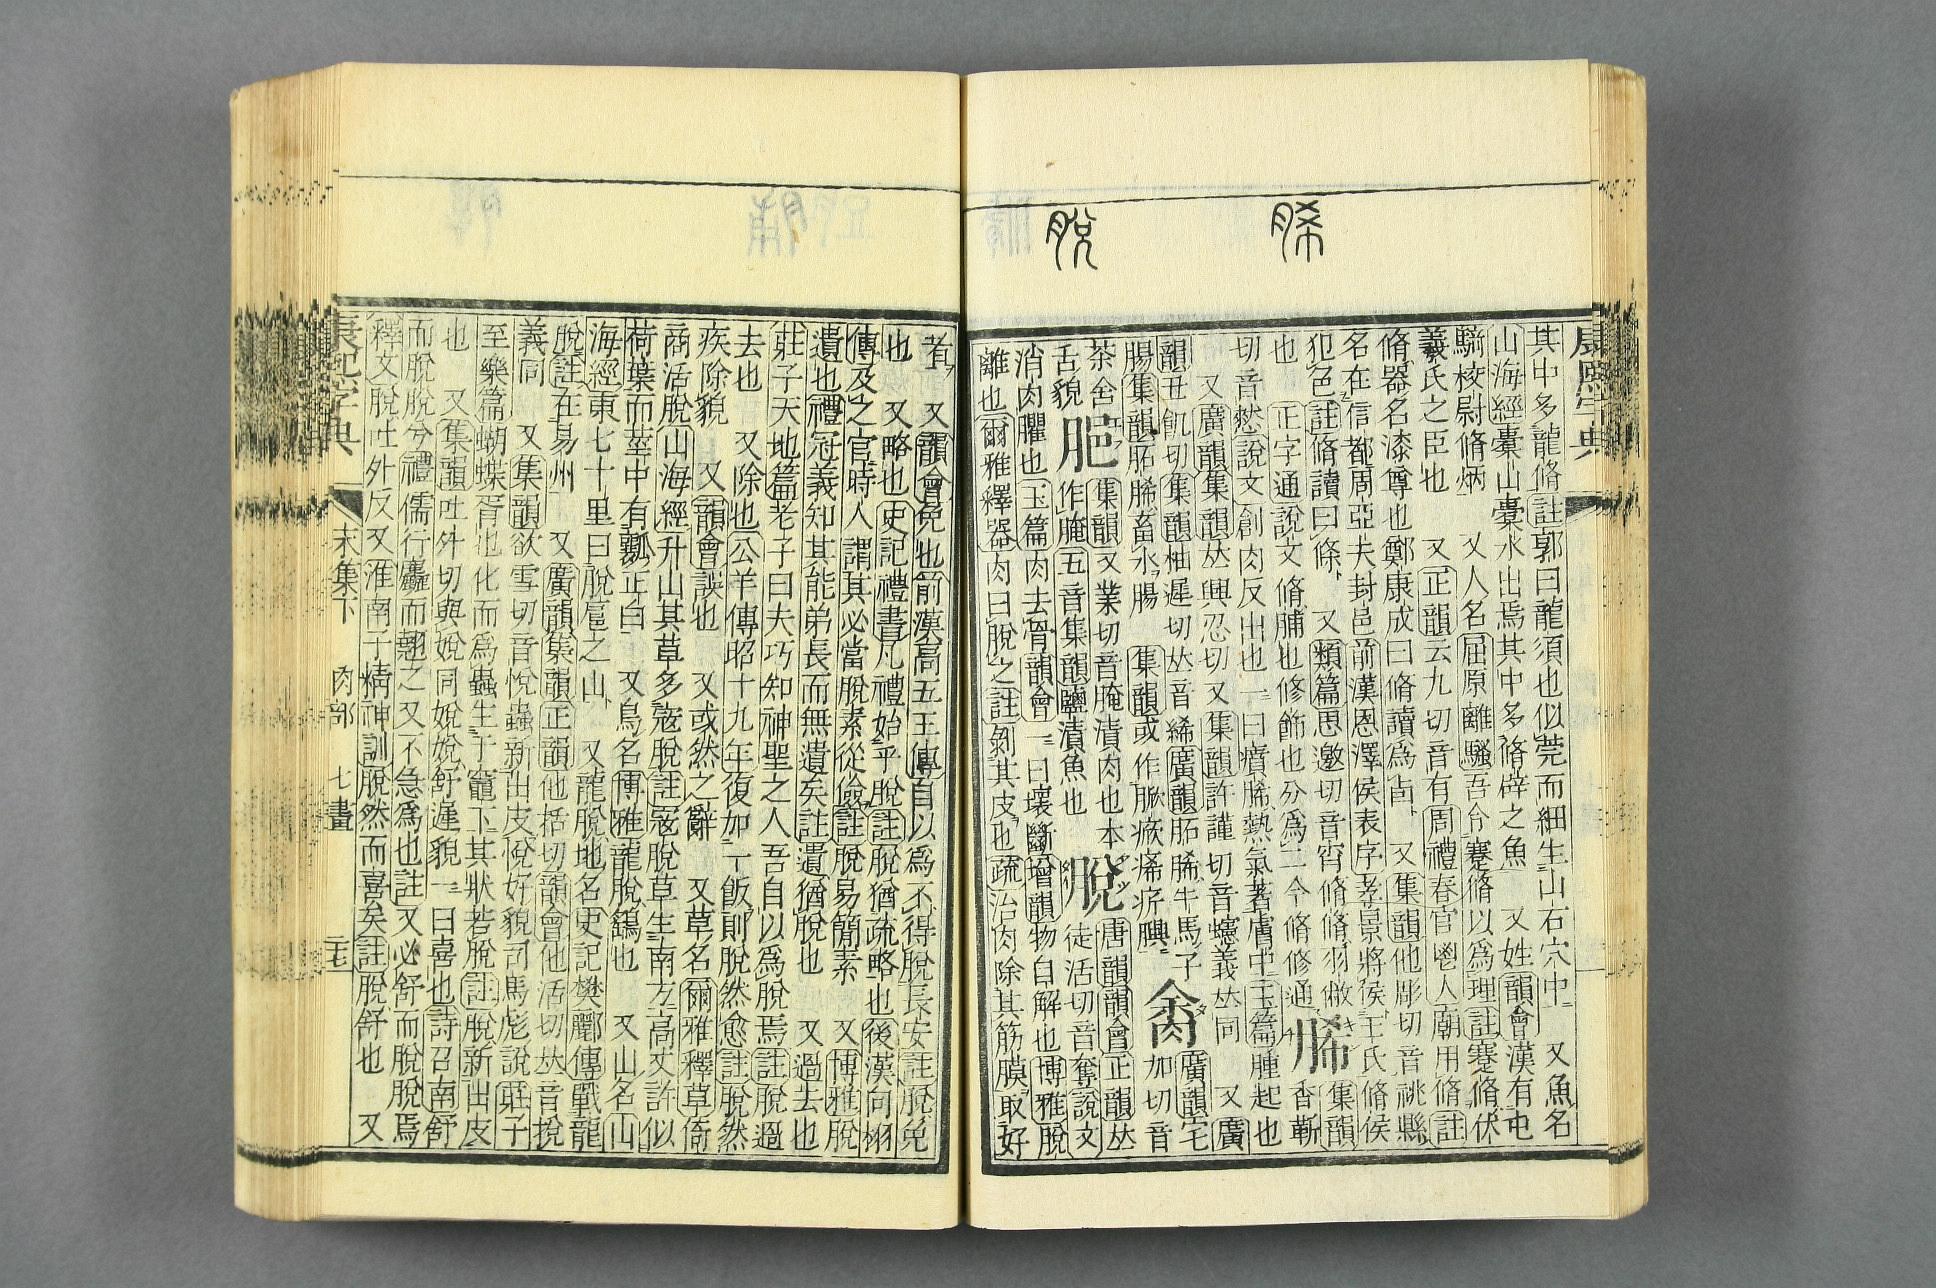 脱
脪
康熙字典
其中多龍脩註郭曰龍須也似莞而細生山石穴中 又魚名
山海經橐山橐水出焉其中多脩辟之魚 又姓韻會漢有屯
騎校尉脩炳 又人名屈原離騷吾令蹇脩以爲理註蹇脩伏
羲氏之臣也 又正韻云九切音有周禮春官鬯人廟用脩註
脩器名漆尊也鄭康成曰脩讀爲卣 又集韻他彫切音祧縣
名在信都周亞夫封邑前漢恩澤侯表字 景將侯王氏脩侯
犯色註脩讀曰條 又類篇思邀切音宵脩脩羽敝 集韻
也 正字通說文脩脯也修飾也分爲二今脩修通 脪 香靳
切音憖說文創肉反出也一曰癀脪熱氣著膚中玉篇腫起也
又廣韻集韻𠀤興忍切又集韻許謹切音蠵義𠀤同 又廣
韻丑飢切集韻柚遲切𠀤音絺廣韻脴脪牛馬子 廣韻宅
腸集韻脴脪畜水腸 集韻或作 痏疨興 肏 加切音
茶舍 𦛟 集韻又業切音腌漬肉也本 脫 唐韻韻會正韻𠀤
舌貌 作腌五音集韻鹽漬魚也 徒活切音奪說文
消肉臞也玉篇肉去骨韻會一曰壞斷增韻物自解也博雅脫
離也爾雅釋器肉曰脫之註剝其皮也疏治肉除其筋膜取好
者 又韻會免也前漢高五王傳自以爲不得脫長安註脫免
也 又略也史記禮書凡禮始乎脫註脫猶疏略也後漢向栩
傳及之官時人謂其必當脫素從儉註脫易簡素 又博雅脫
遺也禮冠義知其能弟長而無遺矣註遺猶脫也 又過去也
莊子天地篇老子曰夫巧知神聖之人吾自以爲脫焉註脫過
去也 又除也公羊傳昭十九年復加一飯則脫然愈註脫然
疾除貌 又韻會誤也 又或然之辭 又草名爾雅釋草倚
商活脫山海經升山其草多寇脫註寇脫草生南方高丈許似
荷葉而莖中有瓤正白 又鳥名博雅龍脫鷂也 又山名山
海經東七十里曰脫扈之山 又龍脫地名史記樊酈傳戰龍
脫註在易州 又廣韻集韻正韻他括切韻會他活切𠀤音挩
義同 又集韻欲雪切音悅蟲新出皮悅好貌司馬彪說莊子
至樂篇蝴蝶胥也化而爲蟲生于竈下其狀若脫註脫新出皮
也 又集韻吐外切與娧同娧娧舒遲貌一曰喜也詩召南舒
而脫脫兮禮儒行麤而翹之又不急爲也註又必舒而脫脫焉
釋文脫吐外反又淮南子精神訓脫然而喜矣註脫舒也 又
康熙字典 未集下 肉部 七畫 二七